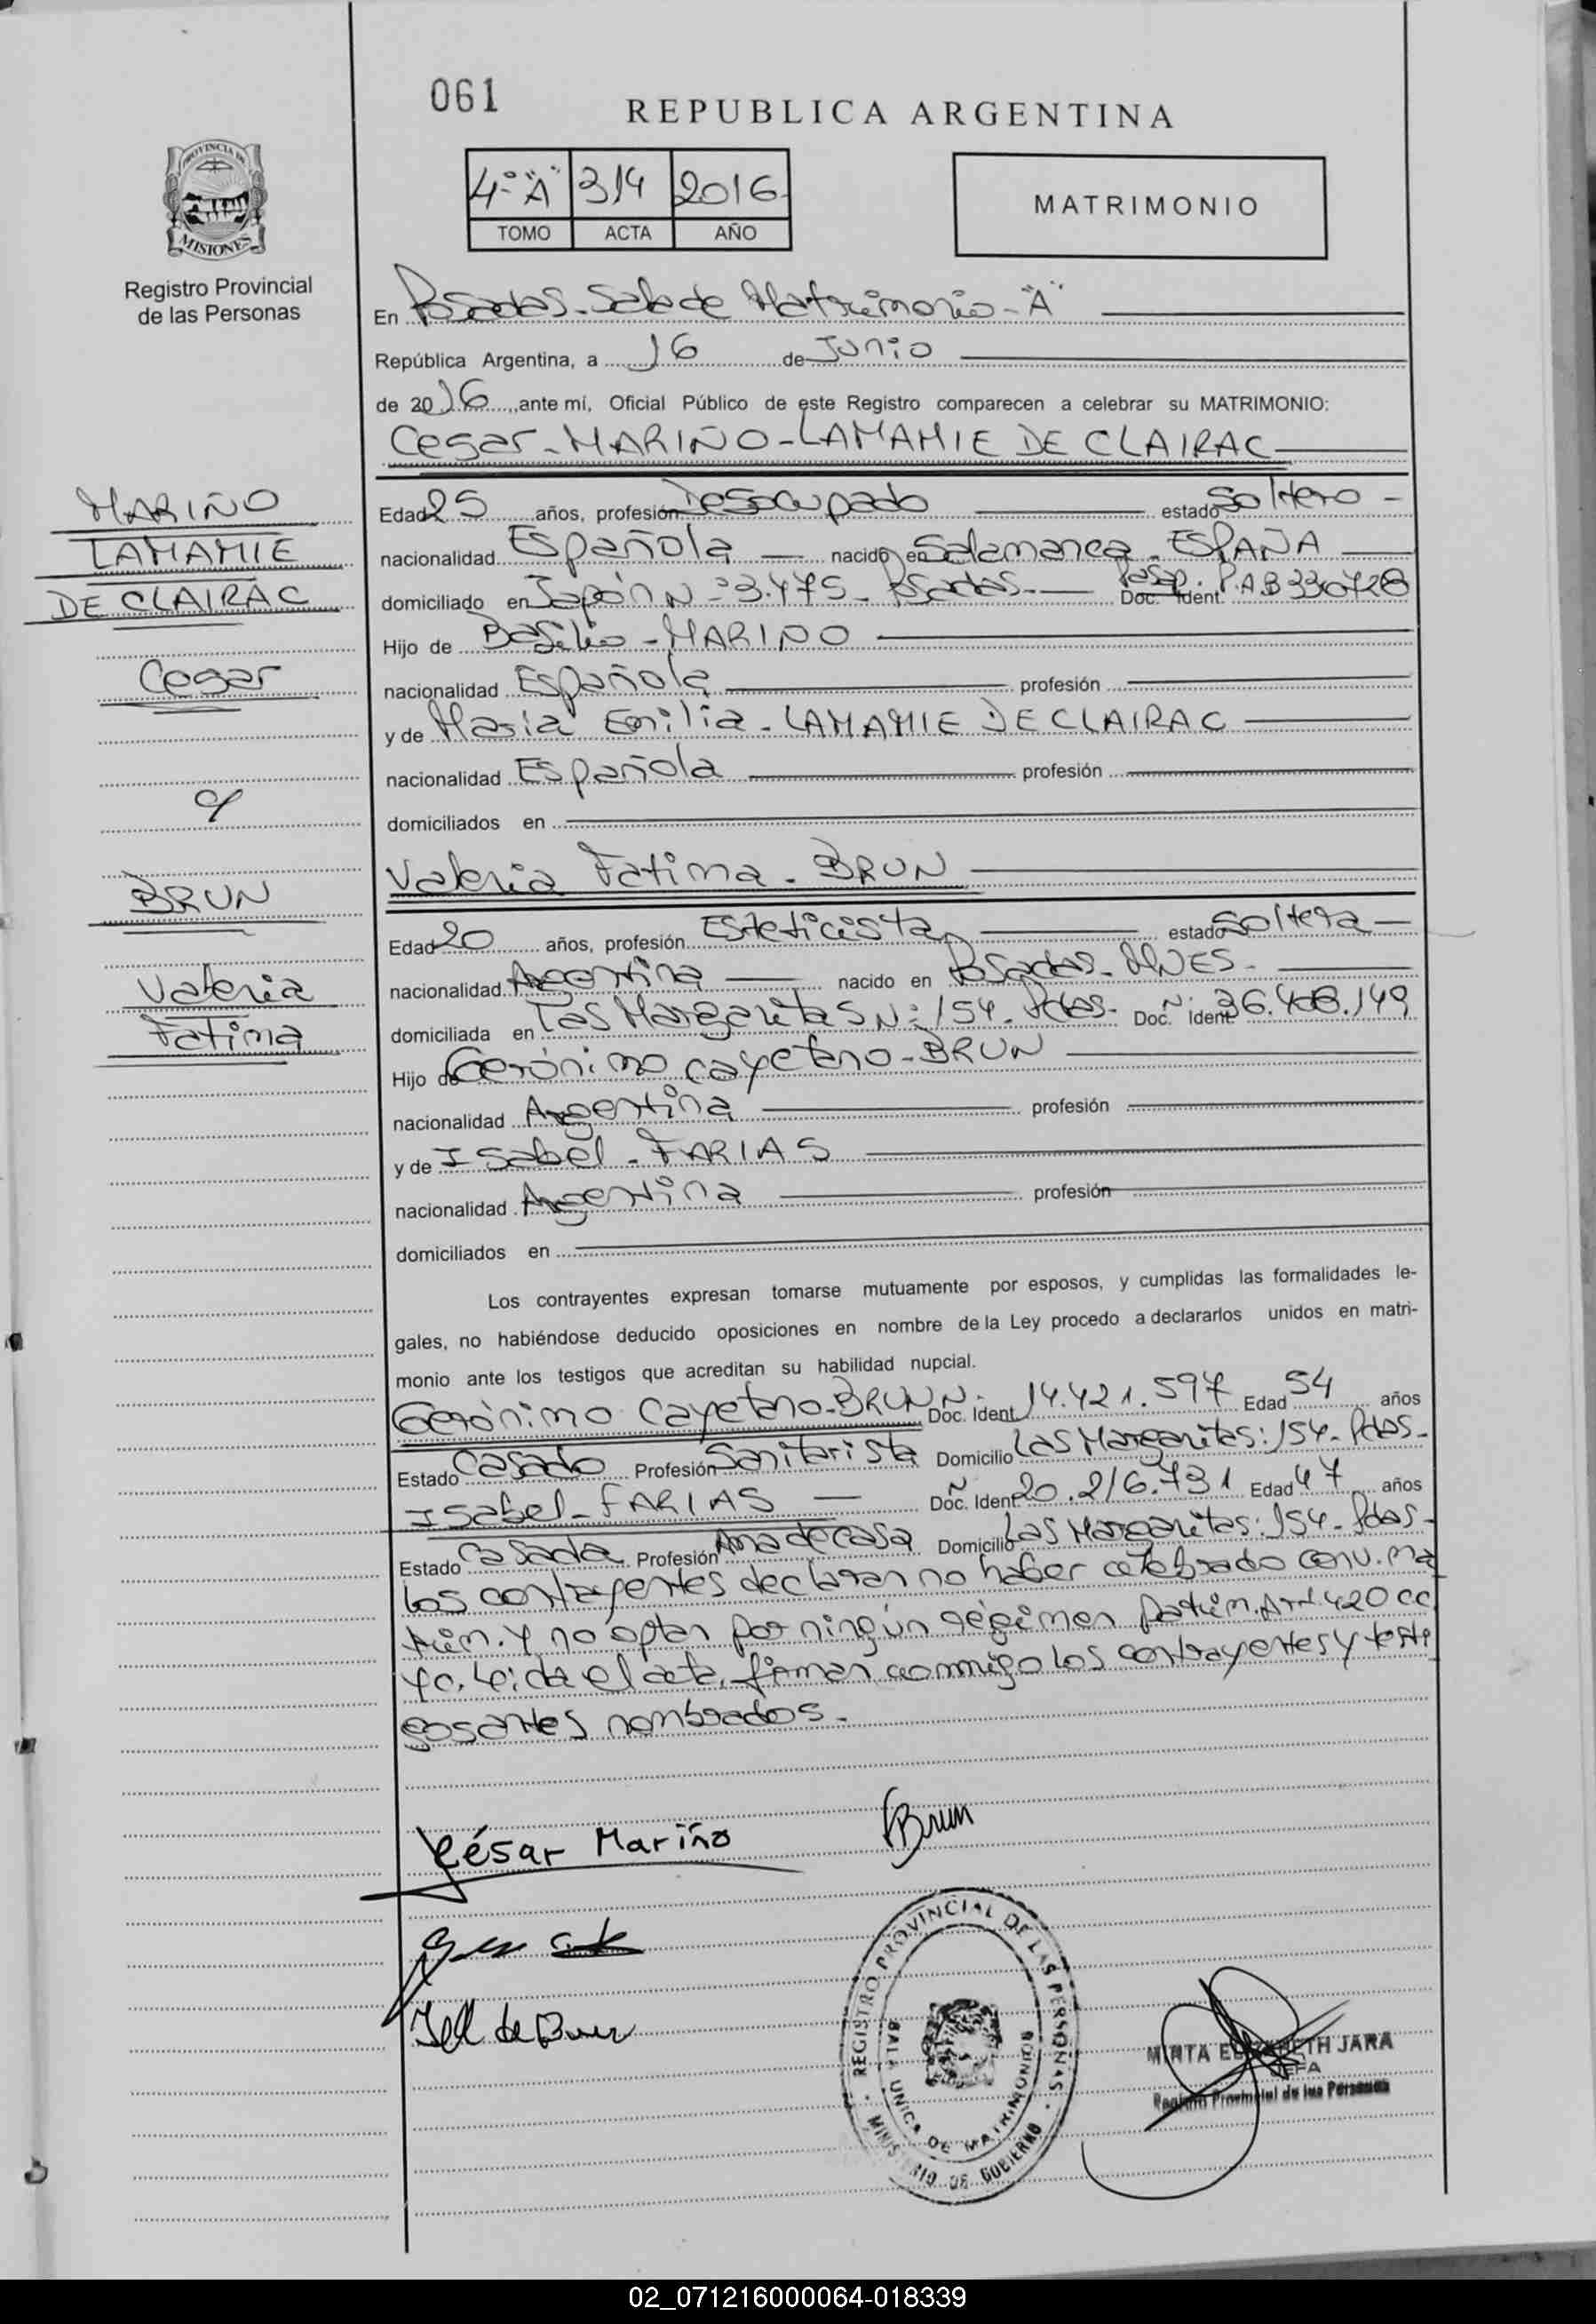 061
REPUBLICA ARGENTINA
PROVINCIA DE
MISIONES
Registro Provincial
de las Personas
4º "A" 314 2016
TOMO ACTA AÑO
MATRIMONIO
En Posadas - Sala de Matrimonio - "A"
República Argentina, a 16 de Junio
de 2016, ante mí, Oficial Público de este Registro comparecen a celebrar su MATRIMONIO:
Cesar - MARIÑO - LAMAMIE DE CLAIRAC
MARIÑO
LAMAMIE
DE CLAIRAC
Cesar
Edad 25 años, profesión Desocupado estado Soltero -
nacionalidad Española nacido en Salamanca - ESPAÑA
domiciliado en Japón Nº 3.475 - Posadas - Doc. Ident. Pasap. P.A.B 330728
Hijo de Basilio - MARIÑO
nacionalidad Española profesión
y de Maria Emilia - LAMAMIE DE CLAIRAC
nacionalidad Española profesión
domiciliados en
c/
BRUN
Valeria
Fatima
Valeria Fatima - BRUN
Edad 20 años, profesión Esteticista estado Soltera -
nacionalidad Argentina nacido en Posadas - MNES -
domiciliada en Las Margaritas Nº: 154 - Pdas - Doc. Ident. Nº 36.408.149
Hijo de Gerónimo Cayetano - BRUN
nacionalidad Argentina profesión
y de Isabel - FARIAS
nacionalidad Argentina profesión
domiciliados en
Los contrayentes expresan tomarse mutuamente por esposos, y cumplidas las formalidades le-
gales, no habiéndose deducido oposiciones en nombre de la Ley procedo a declararlos unidos en matri-
monio ante los testigos que acreditan su habilidad nupcial.
Gerónimo Cayetano - BRUN Doc. Ident. Nº 14.421.597 Edad 54 años
Estado Casado Profesión Sanitarista Domicilio Las Margaritas: 154 - Pdas -
Isabel - FARIAS Doc. Ident. Nº 20.216.731 Edad 47 años
Estado Casada Profesión Ama de casa Domicilio Las Margaritas: 154 - Pdas -
Los contrayentes declaran no haber celebrado conv. ma
trim. y no optan por ningún régimen patrim. Art 420 cc
yc. Leida el acta, firman conmigo los contrayentes y testi
gos antes nombrados -
César Mariño
VBrun
REGISTRO PROVINCIAL DE LAS PERSONAS
SALA UNICA DE MATRIMONIOS
MINISTERIO DE GOBIERNO
MIRTA ELIZABETH JARA
JEFA
Registro Provincial de las Personas
02_071216000064-018339